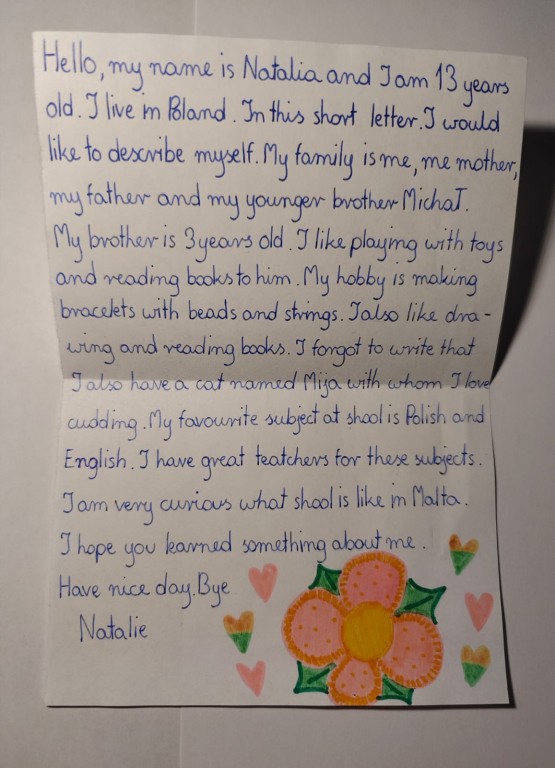 Hello, my name is Natalia and I am 13 years
old. I live in Poland. In this short letter. I would
like to describe myself. My family is me, me mother,
my father and my younger brother Michał.
My brother is 3 years old. I like playing with toys
and reading books to him. My hobby is making
bracelets with beads and strings. I also like dra-
wing and reading books. I forgot to write that
I also have a cat named Mija with whom I love
cudding. My favourite subject at shool is Polish and
English. I have great teatchers for these subjects.
I am very curious what shool is like in Malta.
I hope you learned something about me.
Have nice day. Bye
Natalie